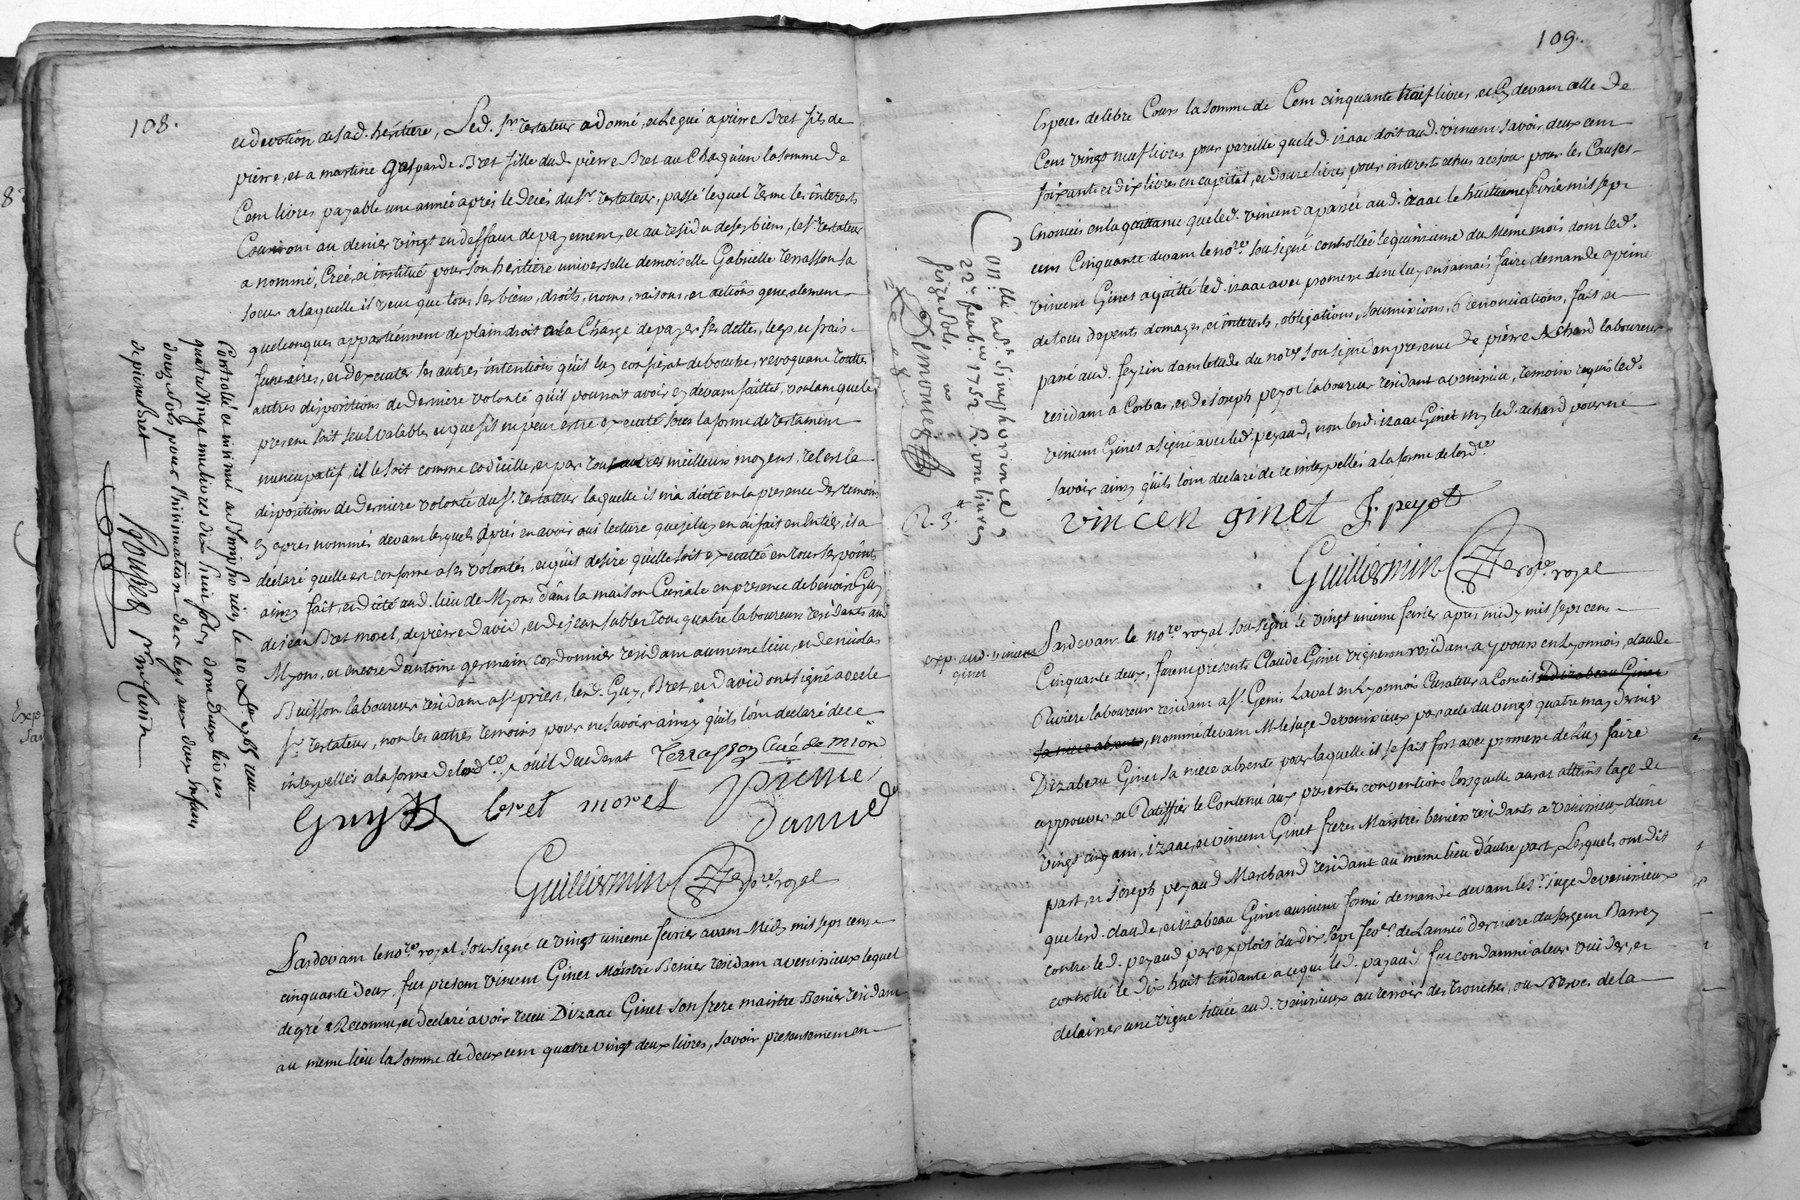 108.
et devotion de sad. heritiere, Led. Sr. testateur a donné, et legué a pierre Bret fils de
pierre, et a martine gasparde Bret fille dud. pierre Bret au Chaqu'un la somme de
Cent livres payable une année aprés le decés du Sr. testateur, passé lequel terme les interests
Courront au denier vingt en deffaut de payement, et au residu de ses biens, led. Sr. testateur
a nommé, Créé, et institué pour son heritiere universelle demoiselle Gabrielle terrasson sa
soeur a laquelle il veut que tous ses biens, droits, noms, raisons, et actions generalement
quelconques appartiennent de plain droit a la Charge de payer ses dettes, legs, et frais
funeraires, et d'executer les autres intentions qu'il luy confierat de bouche, revoquant toutes
autres dispositions de derniere volonté qu'il pourroit avoir cy devant faittes, voulant que le
present soit seul valable, et que s'il ne peut estre executé sous la forme de testament
nuncupatif, il le soit comme codicille, et par tous autres meilleurs moyens, tel est la
disposition de derniere volonté du Sr. testateur laquelle il m'a dictée en la presence des temoins
cy apres nommés devant lesquels aprés en avoir oui lecture que je luy en ai fait en entier, il a
declaré quelle est conforme a ses volontés, et qu'il desire quelle soit executée en tous ses points
ainsy fait, et dicté aud. lieu de Myons dans la maison Curiale en presence de benoit Guy
de jean Bret morel, de pierre David, et de jean sablet tous quatre laboureurs residants aud.
Myons, et encore d'antoine germain cordonnier residant au meme lieu, et de nicolas
Buisson laboureur residant a St. priest, lesd. Guy, Bret, et David ont signé avec le
Sr. testateur, non les autres temoins pour ne savoir ainsy qu'ils l'ont declaré de ce
interpellés a la forme de l'ordce. Terrasson Curé de mion
Guy bret morel pierre
david
Guillermin Nore. royal
Controllé et insinué a St. Simphorien le
quatre vingt
douze sols pour l'insinuation des legs aux deux enfans
de pierre Bret
Pardevant le nore. royal sousigné le vingt unieme fevrier avant Midy mil sept cens
cinquante deux, fut present vincent Ginet Maistre Benier residant a venissieux lequel
de gré a Reconnu, et declaré avoir receu D'izaac Ginet son frere maistre Benier residant
au meme lieu la somme de deux cent quatre vingt deux livres, savoir presentement en
109.
Especes de libre Cours la somme de Cent cinquante trois livres, et cy devant celle de
Cent vingt neuf livres pour pareille que led. izaac doit aud. vincent savoir deux cent
soixante et dix livres en capital, et douze livres pour interests echus a ce jour pour les Causes
enoncées en la quittance que led. vincent a passée aud. izaac le huitieme fevrier mil sept
cent Cinquante devant le nore. sousigné controllée le quinzieme du meme mois dont led.
vincent Ginet a quitté led. izaac avec promesse de ne luy en jamais faire demande a peine
de tous depents, domages, et interests, obligations, soumissions, & renonciations, fait et
passé aud. feyzin dans l'etude du nore. sousigné en presence de pierre Achard laboureur
residant a Corbas, et de joseph peyot laboureur residant a venissieu, temoins requis led.
vincent Ginet a signé avec led. peyaud, non led. izaac Ginet ny led. achard pour ne
savoir ainsy qu'ils l'ont declaré de ce interpellés a la forme de l'ordce.
vincen ginet J. peyot
Guillermin Nore. royal
Conllé. a St. Simphorien ce
22e. feub. 1752 R. une livre
seize sols
R. 3.tt
exp. aud. vincent
ginet
Pardevant le nore. royal sousigné le vingt unieme fevrier apres midy mil sept cens
Cinquante deux, furent presents Claude Ginet vigneron residant a yvours en Lyonnois, claude
Riviere laboureur residant a St. Genis Laval en Lyonnois Curateur a Conseil
nommé devant M. le juge de venissieux par acte du vingt quatre may dernier
D'izabeau Ginet sa niece absente pour laquelle il se fait fort avec promesse de luy faire
approuver, et Ratiffier le Contenu aux presentes conventions lorsqu'elle aurat atteint l'age de
vingt cinq ans, izaac, et vincent Ginet freres Maistres beniers residants a venissieux d'une
part, et joseph peyaud Marchand residant au meme lieu d'autre part, Lesquels ont dit
que lesd. claude, et izabeau Ginet auroient formé demande devant le Sr. juge de venissieux
contre led. peyaud par exploit du dix sept fevr. de l'année derniere du sergent Barrey
controllé le dix huit tendante a ce que led. payaud fut condamné a leur vuider, et
delaisser une vigne située aud. venissieux au terroir des tronches, ou Serves de la